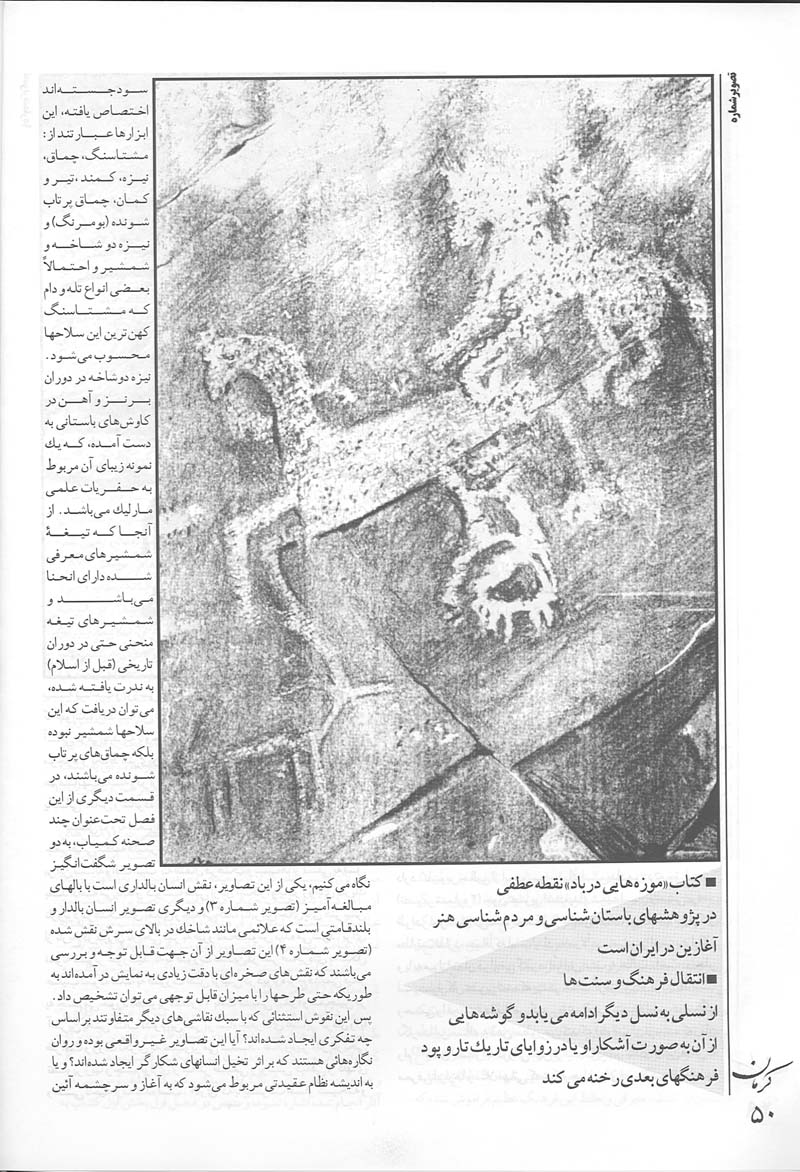 تصویر شماره
سودجسته‌اند
اختصاص یافته، این
ابزارها عبارتند از:
مشتاسنگ، چماق،
نیزه، کمند، تیر و
کمان، چماق پرتاب
شونده (بومرنگ) و
نیزه دو شاخه و
شمشیر و احتمالاً
بعضی انواع تله و دام
که مشتاسنگ
کهن‌ترین این سلاحها
محسوب می‌شود.
نیزه دوشاخه در دوران
برنز و آهن در
کاوش‌های باستانی به
دست آمده، که یك
نمونه زیبای آن مربوط
به حفریات علمی
مارلیك می‌باشد. از
آنجا که تیغهٔ
شمشیرهای معرفی
شده دارای انحنا
می‌باشد و
شمشیرهای تیغه
منحنی حتی در دوران
تاریخی (قبل از اسلام)
به ندرت یافته شده،
می‌توان دریافت که این
سلاحها شمشیر نبوده
بلکه چماق‌های پرتاب
شونده می‌باشند، در
قسمت دیگری از این
فصل تحت‌عنوان چند
صحنه کمیاب، به دو
تصویر شگفت‌انگیز
نگاه می کنیم، یکی از این تصاویر، نقش انسان بالداری است با بالهای
مبالغه‌آمیز (تصویر شماره ۳) و دیگری تصویر انسان بالدار و
بلندقامتی است که علائمی مانند شاخك در بالای سرش نقش شده
(تصویر شماره ۴) این تصاویر از آن جهت قابل توجه و بررسی
می‌باشند که نقش‌های صخره‌ای با دقت زیادی به نمایش در آمده‌اند به
طوریکه حتی طرحها را با میزان قابل توجهی می‌توان تشخیص داد.
پس این نقوش استثنائی که با سبك نقاشی‌های دیگر متفاوتند بر اساس
چه تفکری ایجاد شده‌اند؟ آیا این تصاویر غیرواقعی بوده و روان
نگاره‌هائی هستند که بر اثر تخیل انسانهای شکارگر ایجاد شده‌اند؟ و یا
به اندیشه نظام عقیدتی مربوط می‌شود که به آغاز و سرچشمه آئین
■ کتاب «موزه‌هایی در باد» نقطه عطفی
در پژوهشهای باستان شناسی و مردم شناسی هنر
آغازین در ایران است
■ انتقال فرهنگ و سنت‌ها
از نسلی به نسل دیگر ادامه می یابد و گوشه‌هایی
از آن به صورت آشکار او یا در زوایای تاریك تار و پود
فرهنگهای بعدی رخنه می کند
کرمان
۵۰